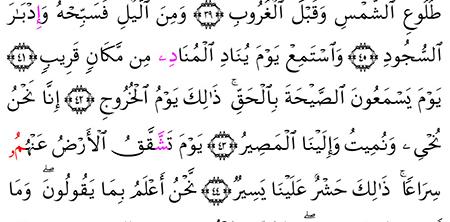 طُلُوعِ الشَّمْسِ وَقَبْلَ الْغُرُوبِ ۝٣٩ وَمِنَ الَّيْلِ فَسَبِّحْهُ وَإِدْبَٰرَ
السُّجُودِ ۝٤٠ وَاسْتَمِعْ يَوْمَ يُنَادِ الْمُنَادِۦ مِن مَّكَانٍ قَرِيبٍ ۝٤١
يَوْمَ يَسْمَعُونَ الصَّيْحَةَ بِالْحَقِّ ۚ ذَٰلِكَ يَوْمُ الْخُرُوجِ ۝٤٢ إِنَّا نَحْنُ
نُحْيِۦ وَنُمِيتُ وَإِلَيْنَا الْمَصِيرُ ۝٤٣ يَوْمَ تَشَّقَّقُ الْأَرْضُ عَنْهُمُۥ
سِرَاعًا ۚ ذَٰلِكَ حَشْرٌ عَلَيْنَا يَسِيرٌ ۝٤٤ نَّحْنُ أَعْلَمُ بِمَا يَقُولُونَ ۖ وَمَا